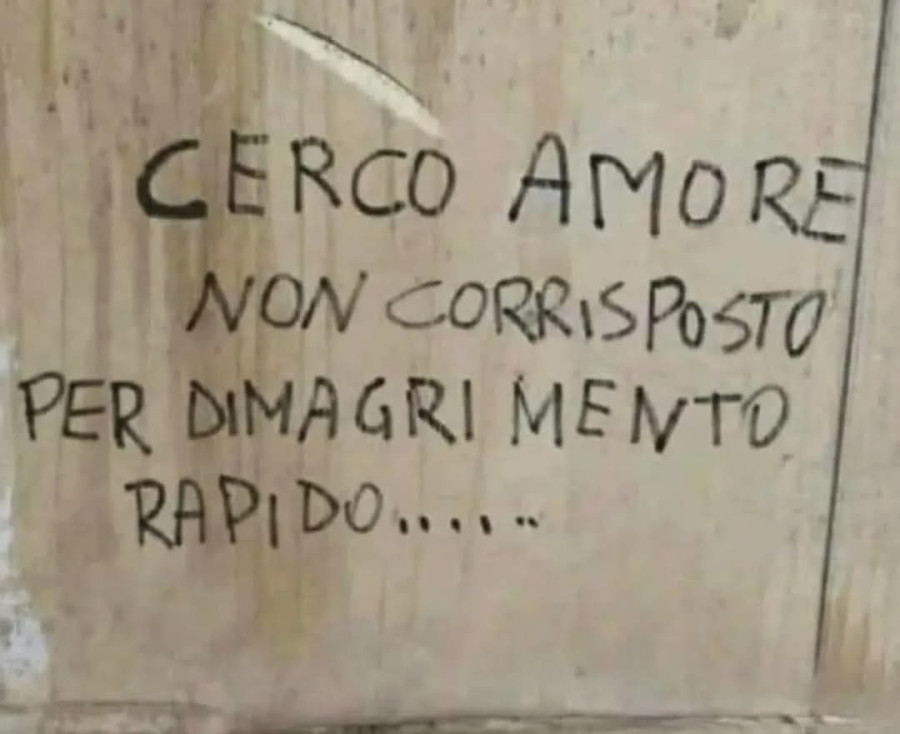 CERCO AMORE
NON CORRISPOSTO
PER DIMAGRIMENTO
RAPIDO......